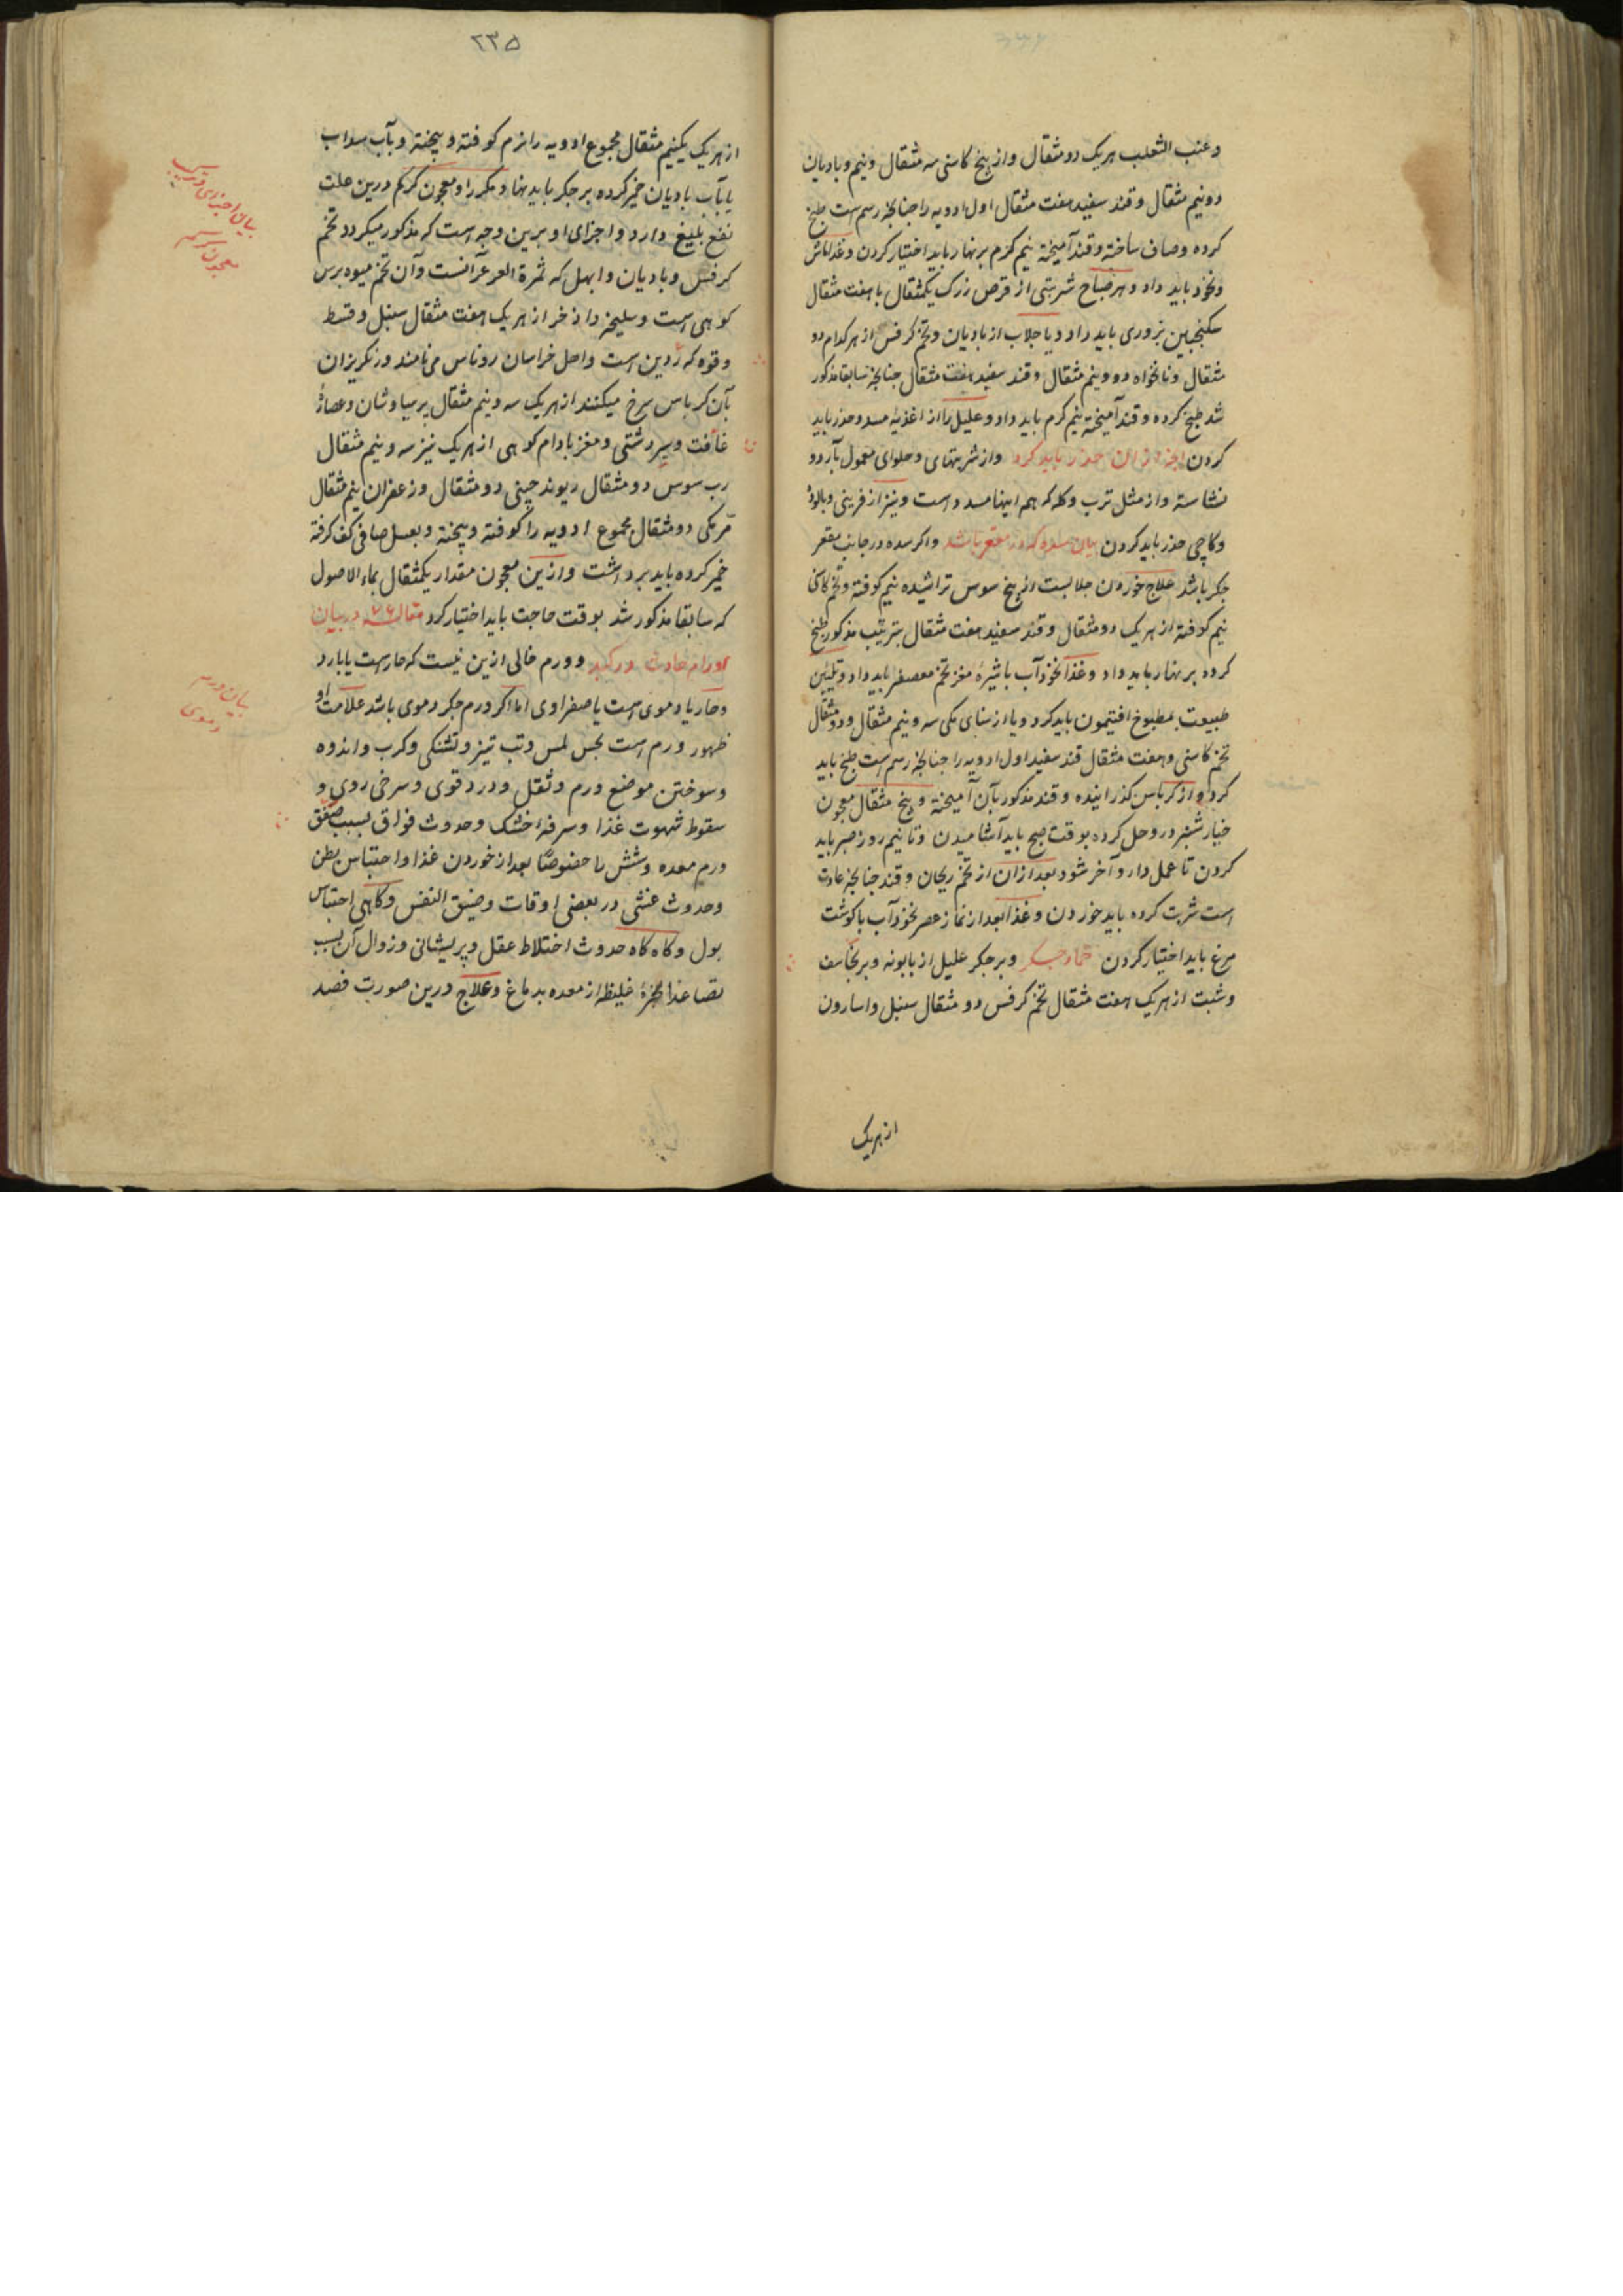 وعنب الثعلب هریک دو مثقال و از بیخ کاسنی سه مثقال ونیم و بادیان
دونیم مثقال وقند سفید هفت مثقال اول ادویه را چنانچه رسم است طبخ
کرده وصاف ساخته وقند آمیخته نیم کرم بر نهار باید اختیار کردن وغذا ماش
ونخود باید داد وهر صباح شربتی از قرص زرک یکمثقال با هفت مثقال
سکنجبین بزوری باید داد ویا جلاب از بادیان وتخم کرفس از هر کدام دو
مثقال ونانخواه دو ونیم مثقال وقند سفید هفت مثقال چنانچه سابقا مذکور
شد طبخ کرده وقند آمیخته نیم کرم باید داد وعلیل را از اغذیه مسدد حذر باید
کردن حذر باید کرد واز شربتهای وحلوای معمول بآرد و
نشاسته واز مثل ترب وکله که هم اینها مسدد است ونیز از فرینی وپالوده
وکاچی حذر باید کردن بیان سده که در مقعر باشد واکر سده در جانب مقعر
جکر باشد علاج خوردن جلابست از بیخ سوس تراشیده نیم کوفته وتخم کاسنی
نیم کوفته از هریک دو مثقال وقند سفید هفت مثقال بترتیب مذکور طبخ
کرده بر نهار باید داد وغذا نخودآب با شیرهٔ مغز تخم معصفر باید داد وتلیین
طبیعت بمطبوخ افتیمون باید کرد ویا از سنای مکی سه ونیم مثقال ودو مثقال
تخم کاسنی وهفت مثقال قند سفید اول ادویه را چنانچه رسم است طبخ باید
کرد و از کرباس کذرانیده وقند مذکور بآن آمیخته وپنج مثقال معجون
خیارشنبر درو حل کرده بوقت صبح باید آشامیدن وتا نیم روز صبر باید
کردن تا عمل دارو آخر شود بعد ازان از تخم ریحان وقند چنانچه عادت
است شربت کرده باید خوردن وغذا بعد از نماز عصر نخودآب با کوشت
مرغ باید اختیار کردن ضماد جکر وبر جکر علیل از بابونه وبرنجاسف
وشبت از هریک هفت مثقال تخم کرفس دو مثقال سنبل واسارون
از هریک
۲۳۵
از هریک یکنیم مثقال مجموع ادویه را نرم کوفته و بیخته وبآب سداب
یا بآب بادیان خمیر کرده بر جکر باید نهاد مکرر او معجون کرکم درین علت
نفع بلیغ دارد واجزای او برین وجه است که مذکور میکردد تخم
کرفس وبادیان وابهل که ثمرة العرعر آنست وآن تخم میوه برس
کوهی است وسلیخه واذخر از هریک هفت مثقال سنبل وقسط
وفوه که رُدین است واهل خراسان روناس می نامند ورنکریزان
بآن کرباس سرخ میکنند از هریک سه ونیم مثقال پرسیاوشان وعصارهٔ
غافت وسیر دشتی ومغز بادام کوهی از هریک نیز سه ونیم مثقال
رب سوس دو مثقال ریوند چینی دو مثقال وزعفران نیم مثقال
مرّ مکی دو مثقال مجموع ادویه را کوفته وبیخته وبعسل صافی کف کرفته
خمیر کرده باید برداشت وازین معجون مقدار یکمثقال بماء الاصول
که سابقا مذکور شد بوقت حاجت باید اختیار کرد مقاله ۷۶ در بیان
اورام حادث در کبد وورم خالی ازین نیست که حار است یا بارد
وحار یا دموی است یا صفراوی اما اکر ورم جکر دموی باشد علامت او
ظهور ورم است بحس لمس وتب تیز وتشنکی وکرب واندوه
وسوختن موضع ورم وثقل ودرد قوی وسرخی روی و
سقوط شهوت غذا وسرفهٔ خشک وحدوث فواق بسبب
ورم معده وشش را خصوصًا بعد از خوردن غذا واحتباس بطن
وحدوث غشی در بعضی اوقات وضیق النفس وکاهی احتباس
بول وکاه کاه حدوث اختلاط عقل وپریشانی وزوال آن بسبب
تصاعد ابخرهٔ غلیظه از معده بدماغ وعلاج درین صورت فصد
بیان اجزای ترکیب
معجون کرکم
بیان ورم
دموی